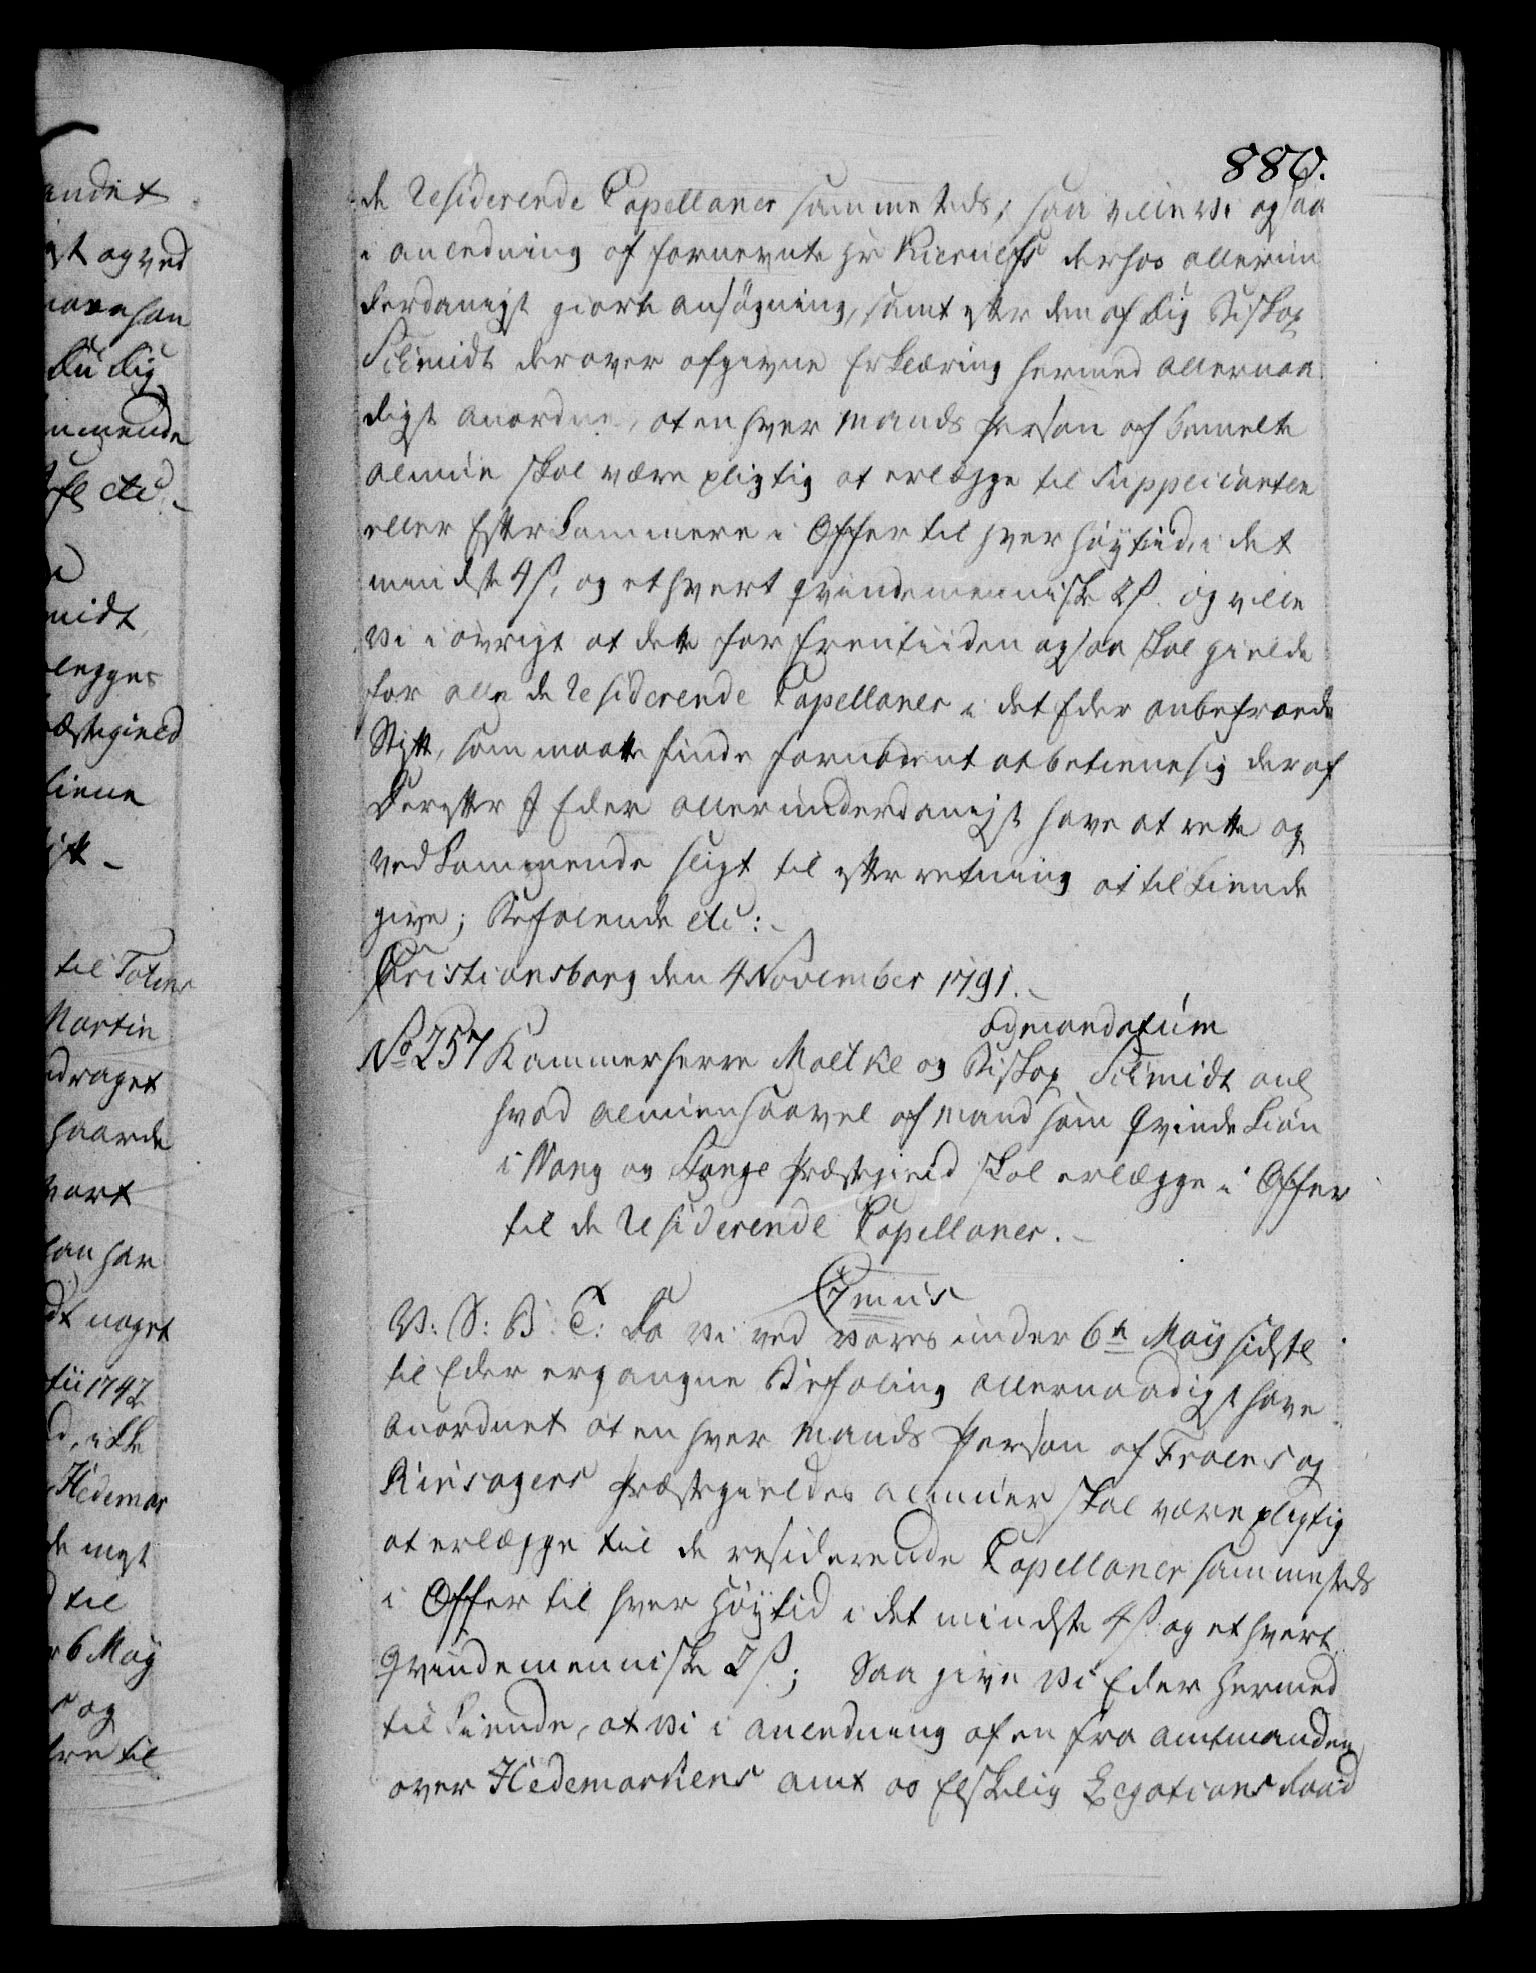 880.
de residerende Capellaner sammesteds; saa ville vi ogsaa
i anledning af fornevnte Hr Kierulfs derhos allerun
derdanigst giorte ansøgning, samt efter den af dig Biskop
Schmidt derover afgivne Erklæring hermed allernaa
digst anordne, at en hver Mands Person af bemelte
almue skal være pligtig at erlægge til Supplicanten
eller Efterkommere i Offer til hver høytid, i det
mindste 4 s, og et hvert qvindemenniske 2 s. og ville
vi i øvrigt at dette for Fremtiiden ogsaa skal gielde
for alle de residerende Capellaner i det Eder anbetroede
Stift, som maatte finde fornødent at betienne sig deraf
Derefter I Eder allerunderdanigst have at rette og
vedkommende sligt til efterretning at tilkiende
give; Befalende etc:
Christiansborg den 4 November 1791.
ad mandatum
No 257 Kammerherre Moltke og Biskop Schmidt anl
hvad almuen saavel af Mand som Qvinde Kiøn
i Vang og Stange Præstegield skal erlægge i Offer
til de residerende Capellaner.
C 7mus
V: S: B: T: Da vi ved vores under 6te Maij sidste
til Eder ergangne Befaling allernaadigst have
anordnet at en hver Mands Person af Froens og
Ringsagers Præstegieldes almuer skal være pligtig
at erlægge til de residerende Capellaner sammesteds
i Offer til hver Høytid i det mindste 4 s og et hvert
Qvindemenniske 2 s; Saa give vi Eder hermed
tilkiende, at vi i anledning af en fra amtmanden
over Hedemarkens amt os Elskelig Legations Raad
andet
st og ved
have han
du dig
ommende
fl etc
midt
legges
æstegield
tiene
ift
til Totens
Martin
draget
haarde
vort
han har
dt noget
tii 1742
d, ikke
Hedemar
de mest
d til
r 6 May
s og
fre til